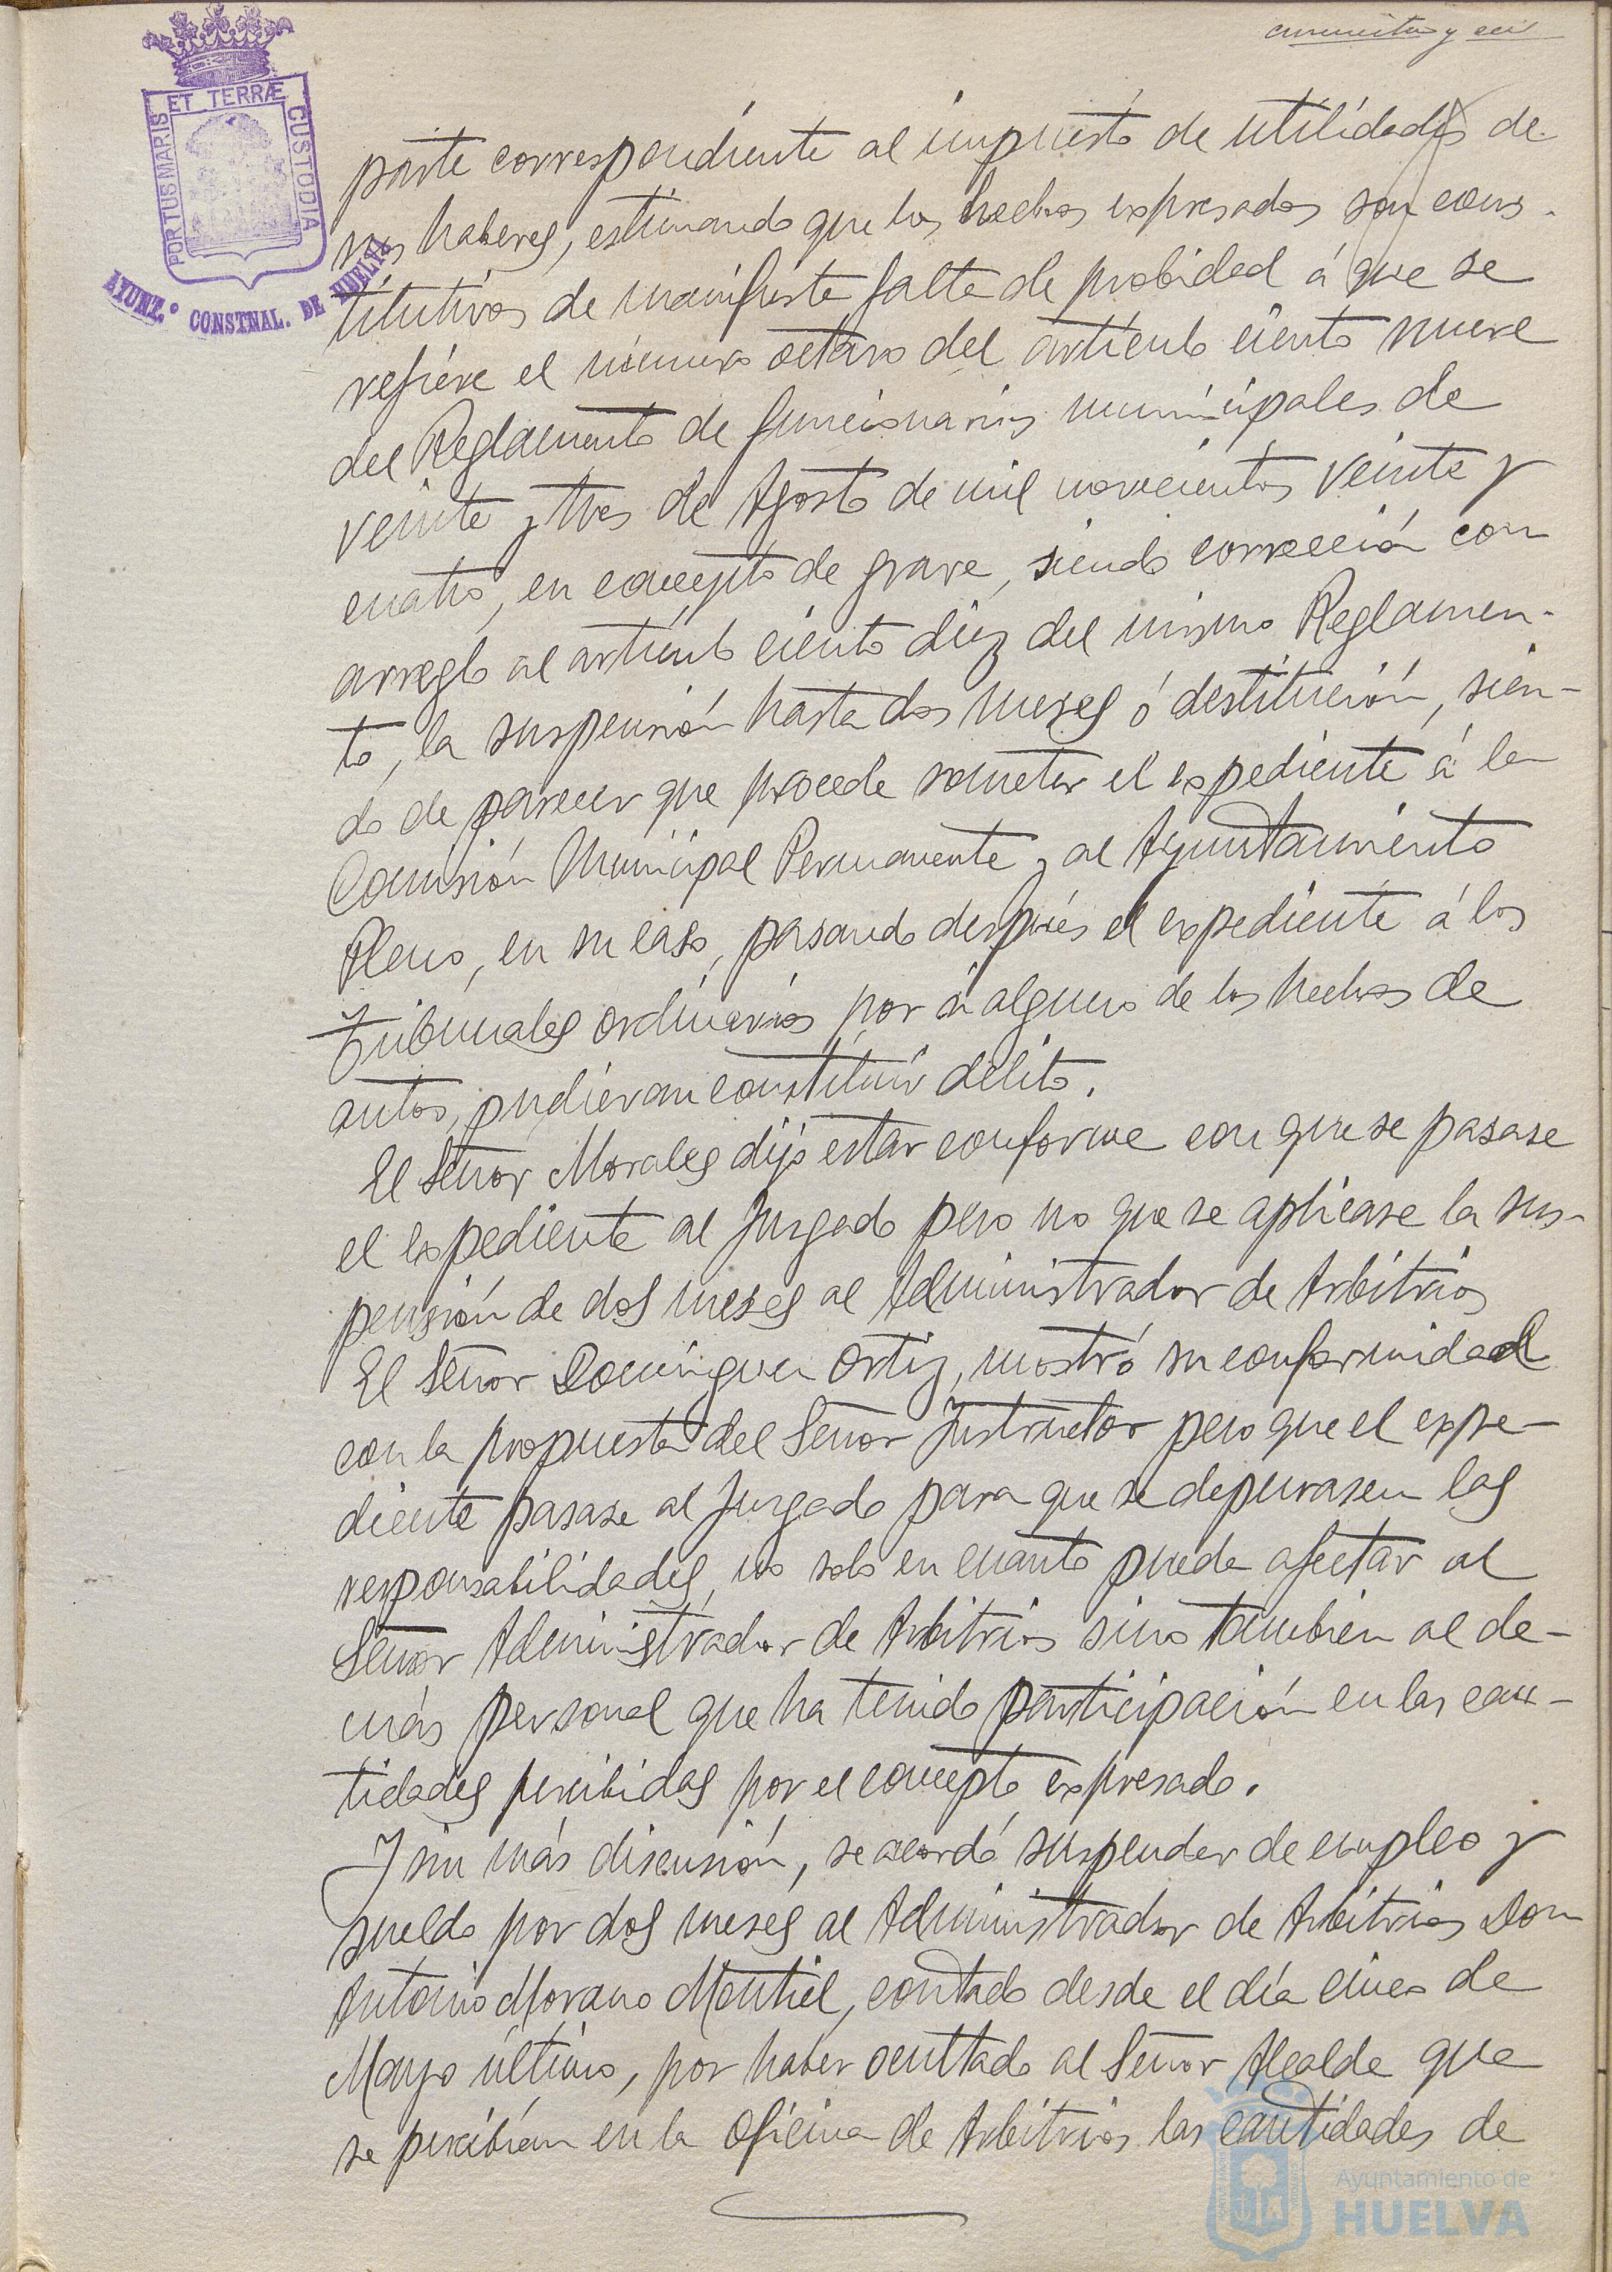 cuarenta y seis
PORTUS MARIS ET TERRÆ CUSTODIA
AYUNT.º CONSTNAL. DE HUELVA
parte correspondiente al impuesto de utilidades de
sus haberes, estimando que los hechos expresados son cons-
titutivos de manifiesta falta de probidad á que se
refiere el número octavo del artículo ciento nueve
del Reglamento de funcionarios municipales de
veinte y tres de Agosto de mil novecientos veinte y
cuatro, en concepto de grave, siendo corrección con
arreglo al artículo ciento diez del mismo Reglamen-
to, la suspensión hasta dos meses ó destitución, sien-
do de parecer que procede someter el expediente á la
Comisión Municipal Permanente y al Ayuntamiento
Pleno, en su caso, pasando después el expediente á los
Tribunales ordinarios por si alguno de los hechos de
autos, pudieran constituir delito.
El Señor Morales dijo estar conforme con que se pasase
el expediente al Juzgado pero no que se aplicase la sus-
pensión de dos meses al Administrador de Arbitrios
El Señor Dominguez Ortiz, mostró su conformidad
con la propuesta del Señor Instructor pero que el expe-
diente pasase al Juzgado para que se depurasen las
responsabilidades, no solo en cuanto pueda afectar al
Señor Administrador de Arbitrios sino tambien al de-
más personal que ha tenido participación en las can-
tidades percibidas por el concepto expresado.
Y sin más discusión, se acordó suspender de empleo y
sueldo por dos meses al Administrador de Arbitrios Don
Antonio Morano Montiel, contado desde el día cinco de
Mayo último, por haber ocultado al Señor Alcalde que
se percibían en la Oficina de Arbitrios las cantidades de
Ayuntamiento de
HUELVA